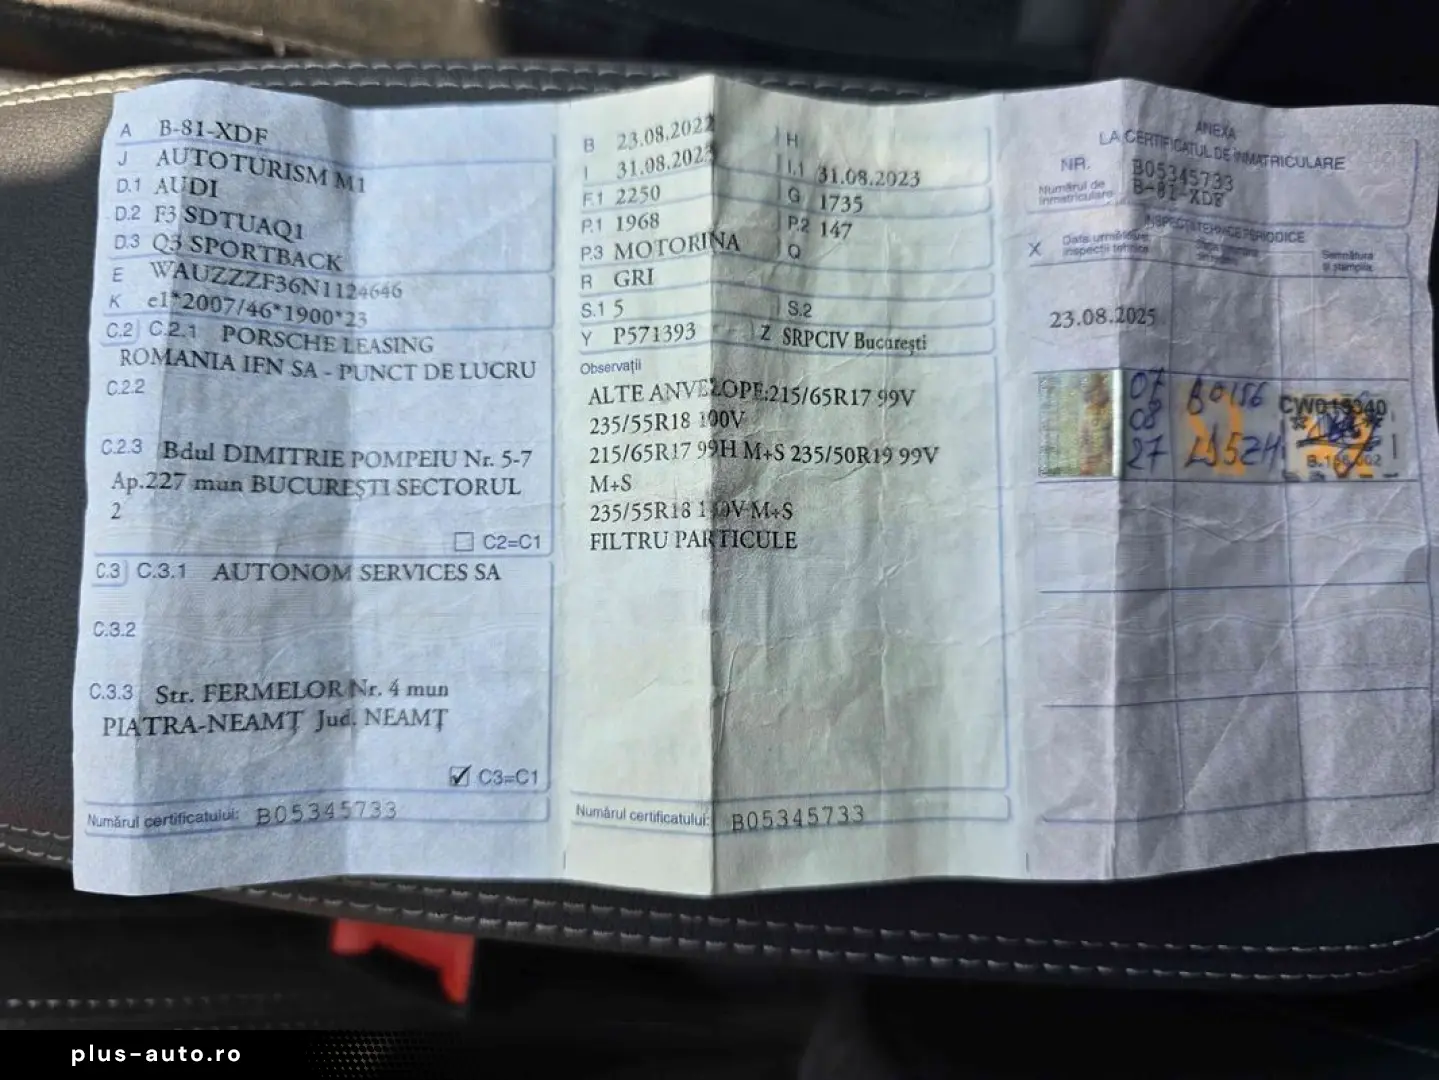 A B-81-XDF
J AUTOTURISM M1
D.1 AUDI
D.2 F3 SDTUAQ1
D.3 Q3 SPORTBACK
E WAUZZZF36N1124646
K e1*2007/46*1900*23
C.2 C.2.1 PORSCHE LEASING
ROMANIA IFN SA - PUNCT DE LUCRU
C.2.2
C.2.3 Bdul DIMITRIE POMPEIU Nr. 5-7
Ap.227 mun BUCUREȘTI SECTORUL
2
C2=C1
C.3 C.3.1 AUTONOM SERVICES SA
C.3.2
C.3.3 Str. FERMELOR Nr. 4 mun
PIATRA-NEAMȚ Jud. NEAMȚ
C3=C1
Numărul certificatului: B05345733
B 23.08.2022 H
I 31.08.2023 I.1 31.08.2023
F.1 2250 G 1735
P.1 1968 P.2 147
P.3 MOTORINA Q
R GRI
S.1 5 S.2
Y P571393 Z SRPCIV București
Observații
ALTE ANVELOPE:215/65R17 99V
235/55R18 100V
215/65R17 99H M+S 235/50R19 99V
M+S
235/55R18 100V M+S
FILTRU PARTICULE
Numărul certificatului: B05345733
ANEXA
LA CERTIFICATUL DE ÎNMATRICULARE
NR. B05345733
Numărul de
înmatriculare B-81-XDF
INSPECȚII TEHNICE PERIODICE
X Data următoarei
inspecții tehnice
Semnătura
și ștampila
23.08.2025
07
08
27
CW015340
plus-auto.ro